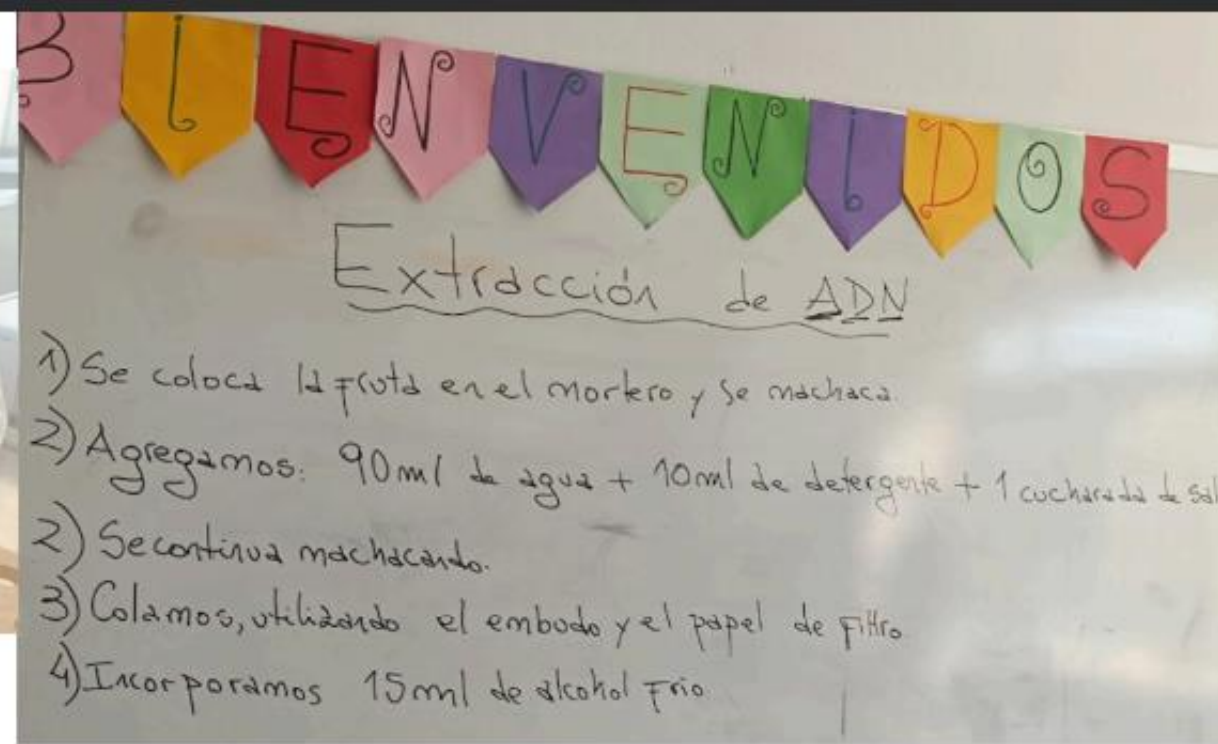 BIENVENIDOS
Extracción de ADN
1) Se coloca la fruta en el mortero y se machaca.
2) Agregamos: 90ml de agua + 10ml de detergente + 1 cucharada de sal
2) Se continua machacando.
3) Colamos, utilizando el embudo y el papel de filtro
4) Incorporamos 15ml de alcohol frio